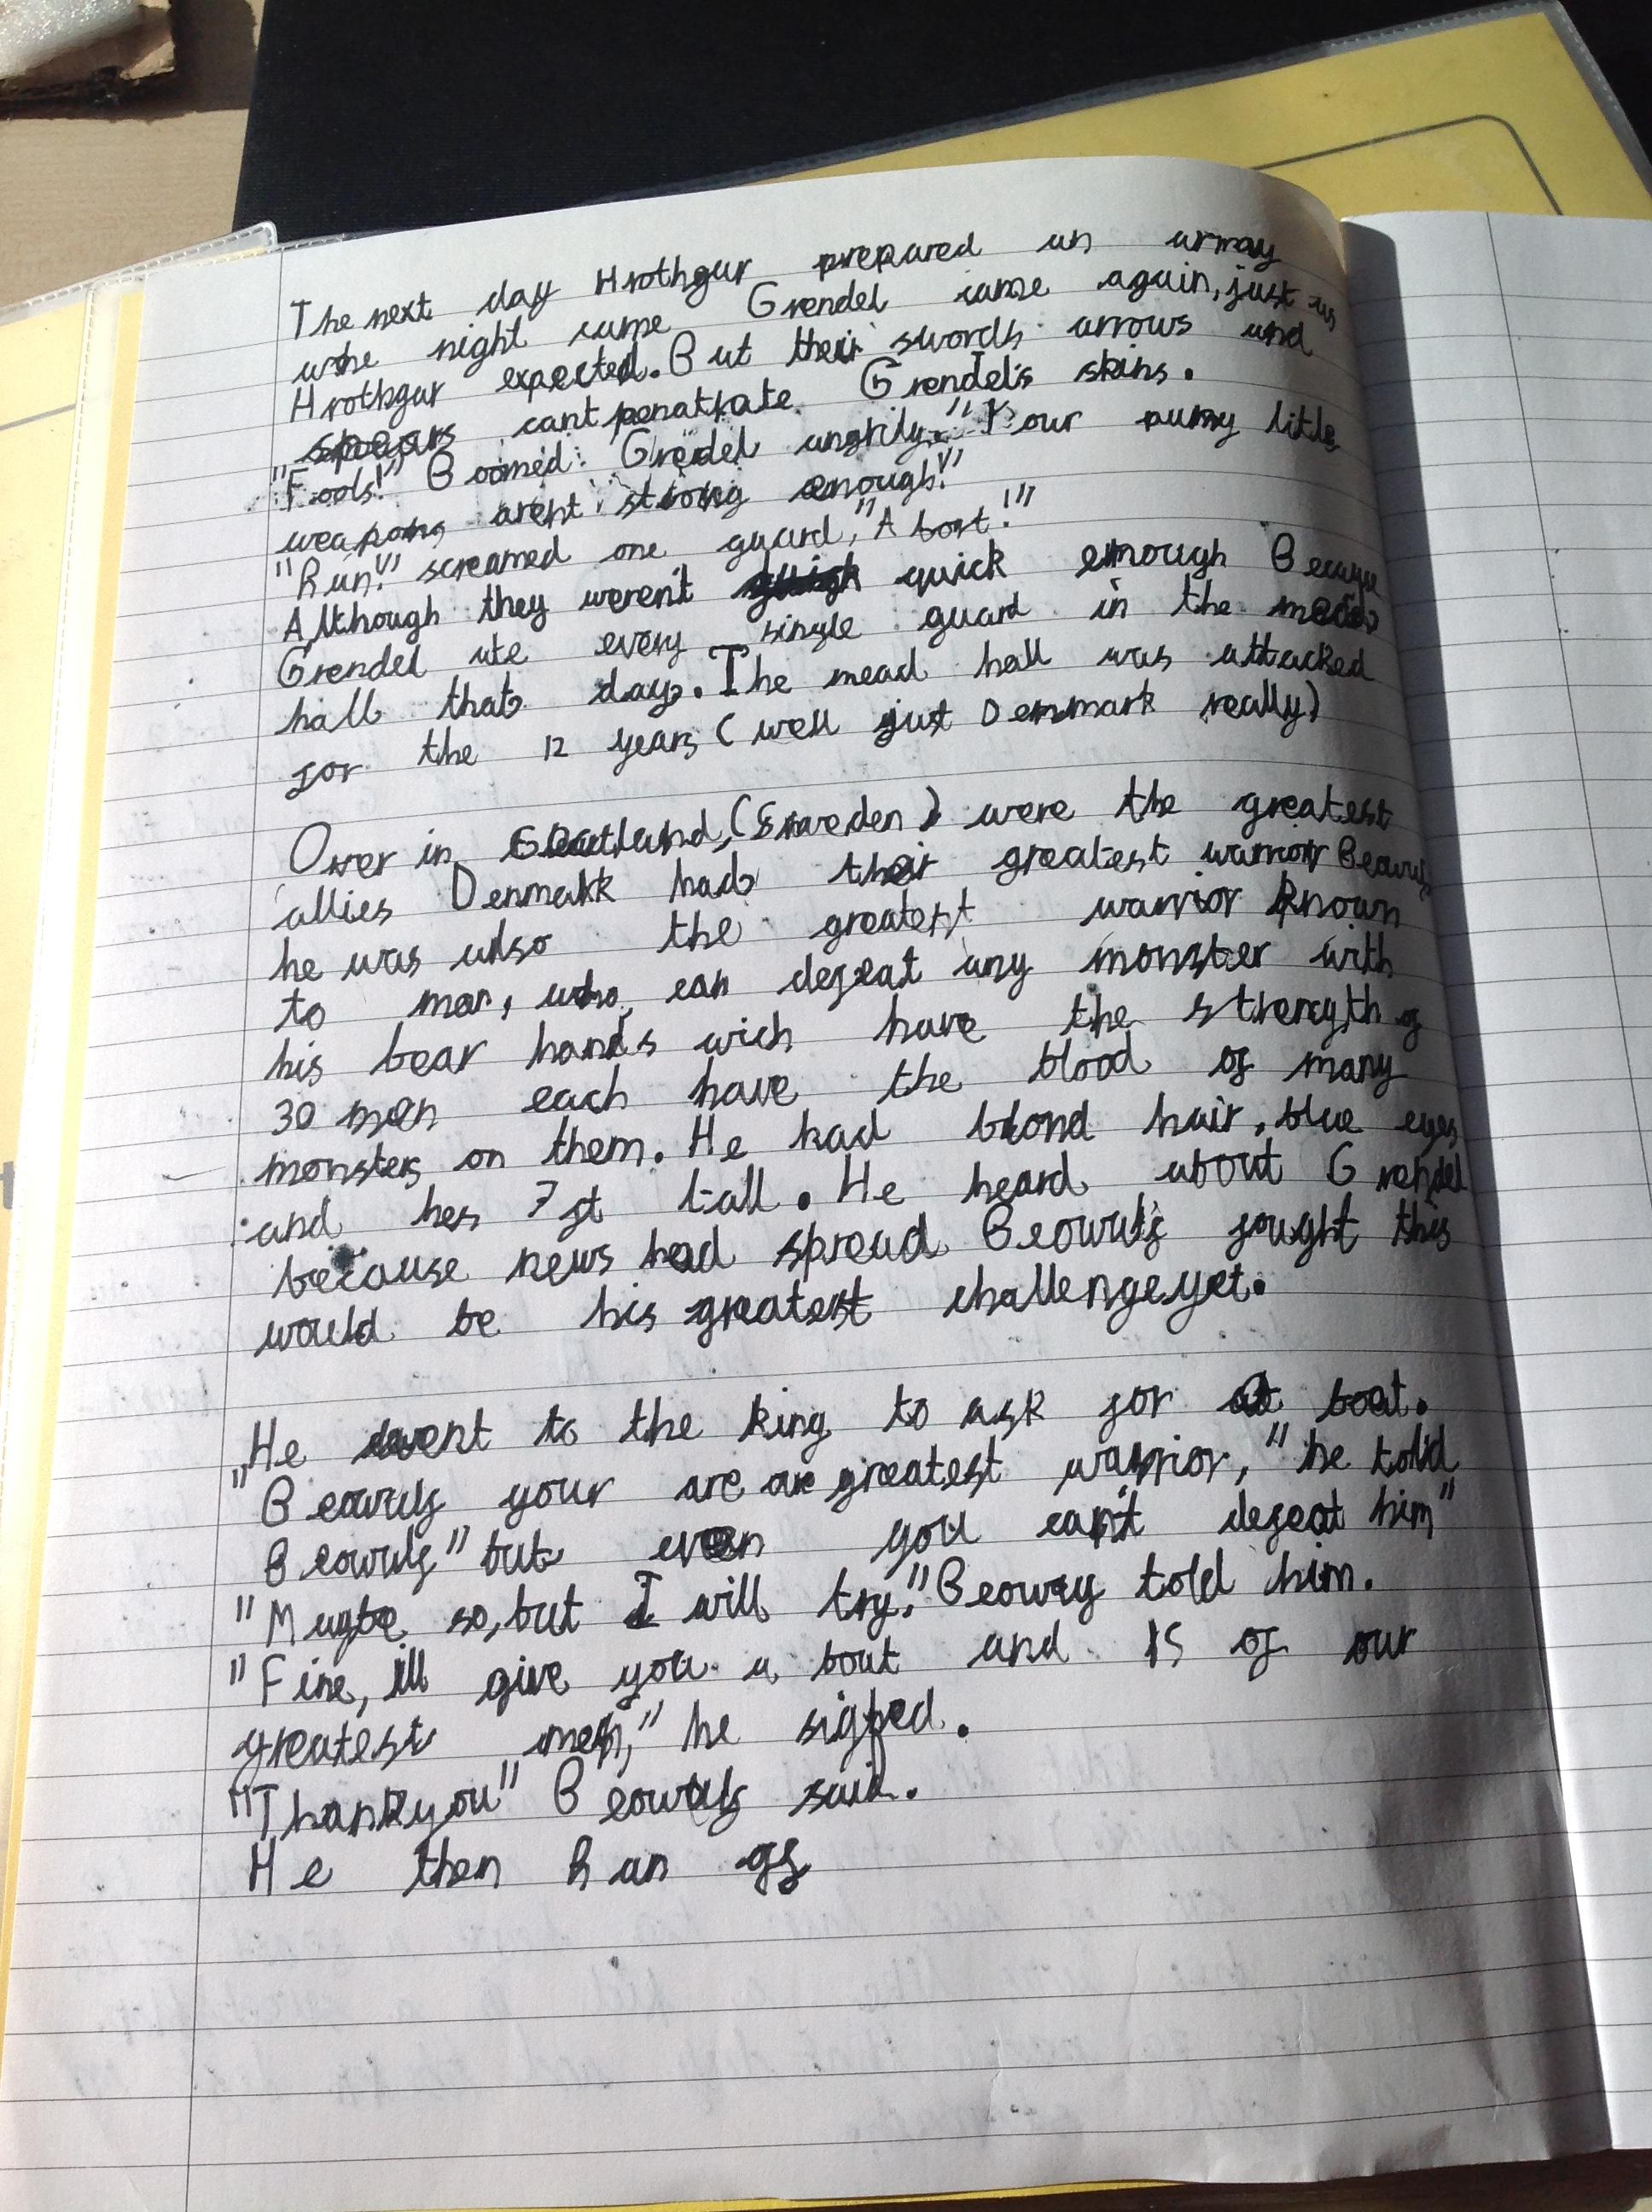 The next day Hrothgar prepared an armay
whe night came Grendel came again, just as
Hrothgar expected. But their swords arrows and
spears cant penatrate Grendel's skins.
"Fools!" Boomed Grendel angrily. "Your puny little
weapons arent strong enough!"
"Run!" screamed one guard, "Abort!"
Although they weren't quick enough Because
Grendel ate every single guard in the mead
hall that day. The mead hall was attacked
for the 12 years (well just Denmark really)
Over in Geatland, (Sweden) were the greatest
allies Denmark had their greatest warrior Beowulf
he was also the greatest warrior known
to man, who can defeat any monster with
his bear hands wich have the strength of
30 men each have the blood of many
monsters on them. He had blond hair, blue eyes
and hes 7 ft tall. He heard about Grendel
because news had spread Beowulf fought this
would be his greatest challenge yet.
He went to the king to ask for a boat.
"Beowulf your are are greatest warrior," he told
Beowulf "but even you can't defeat him"
"Maybe so, but I will try," Beowulf told him.
"Fine, ill give you a boat and 15 of our
greatest men," he sighed.
"Thankyou" Beowulf said.
He then Ran of